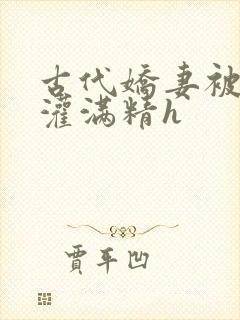 古代嬌妻被
灌滿精h
賈平凹